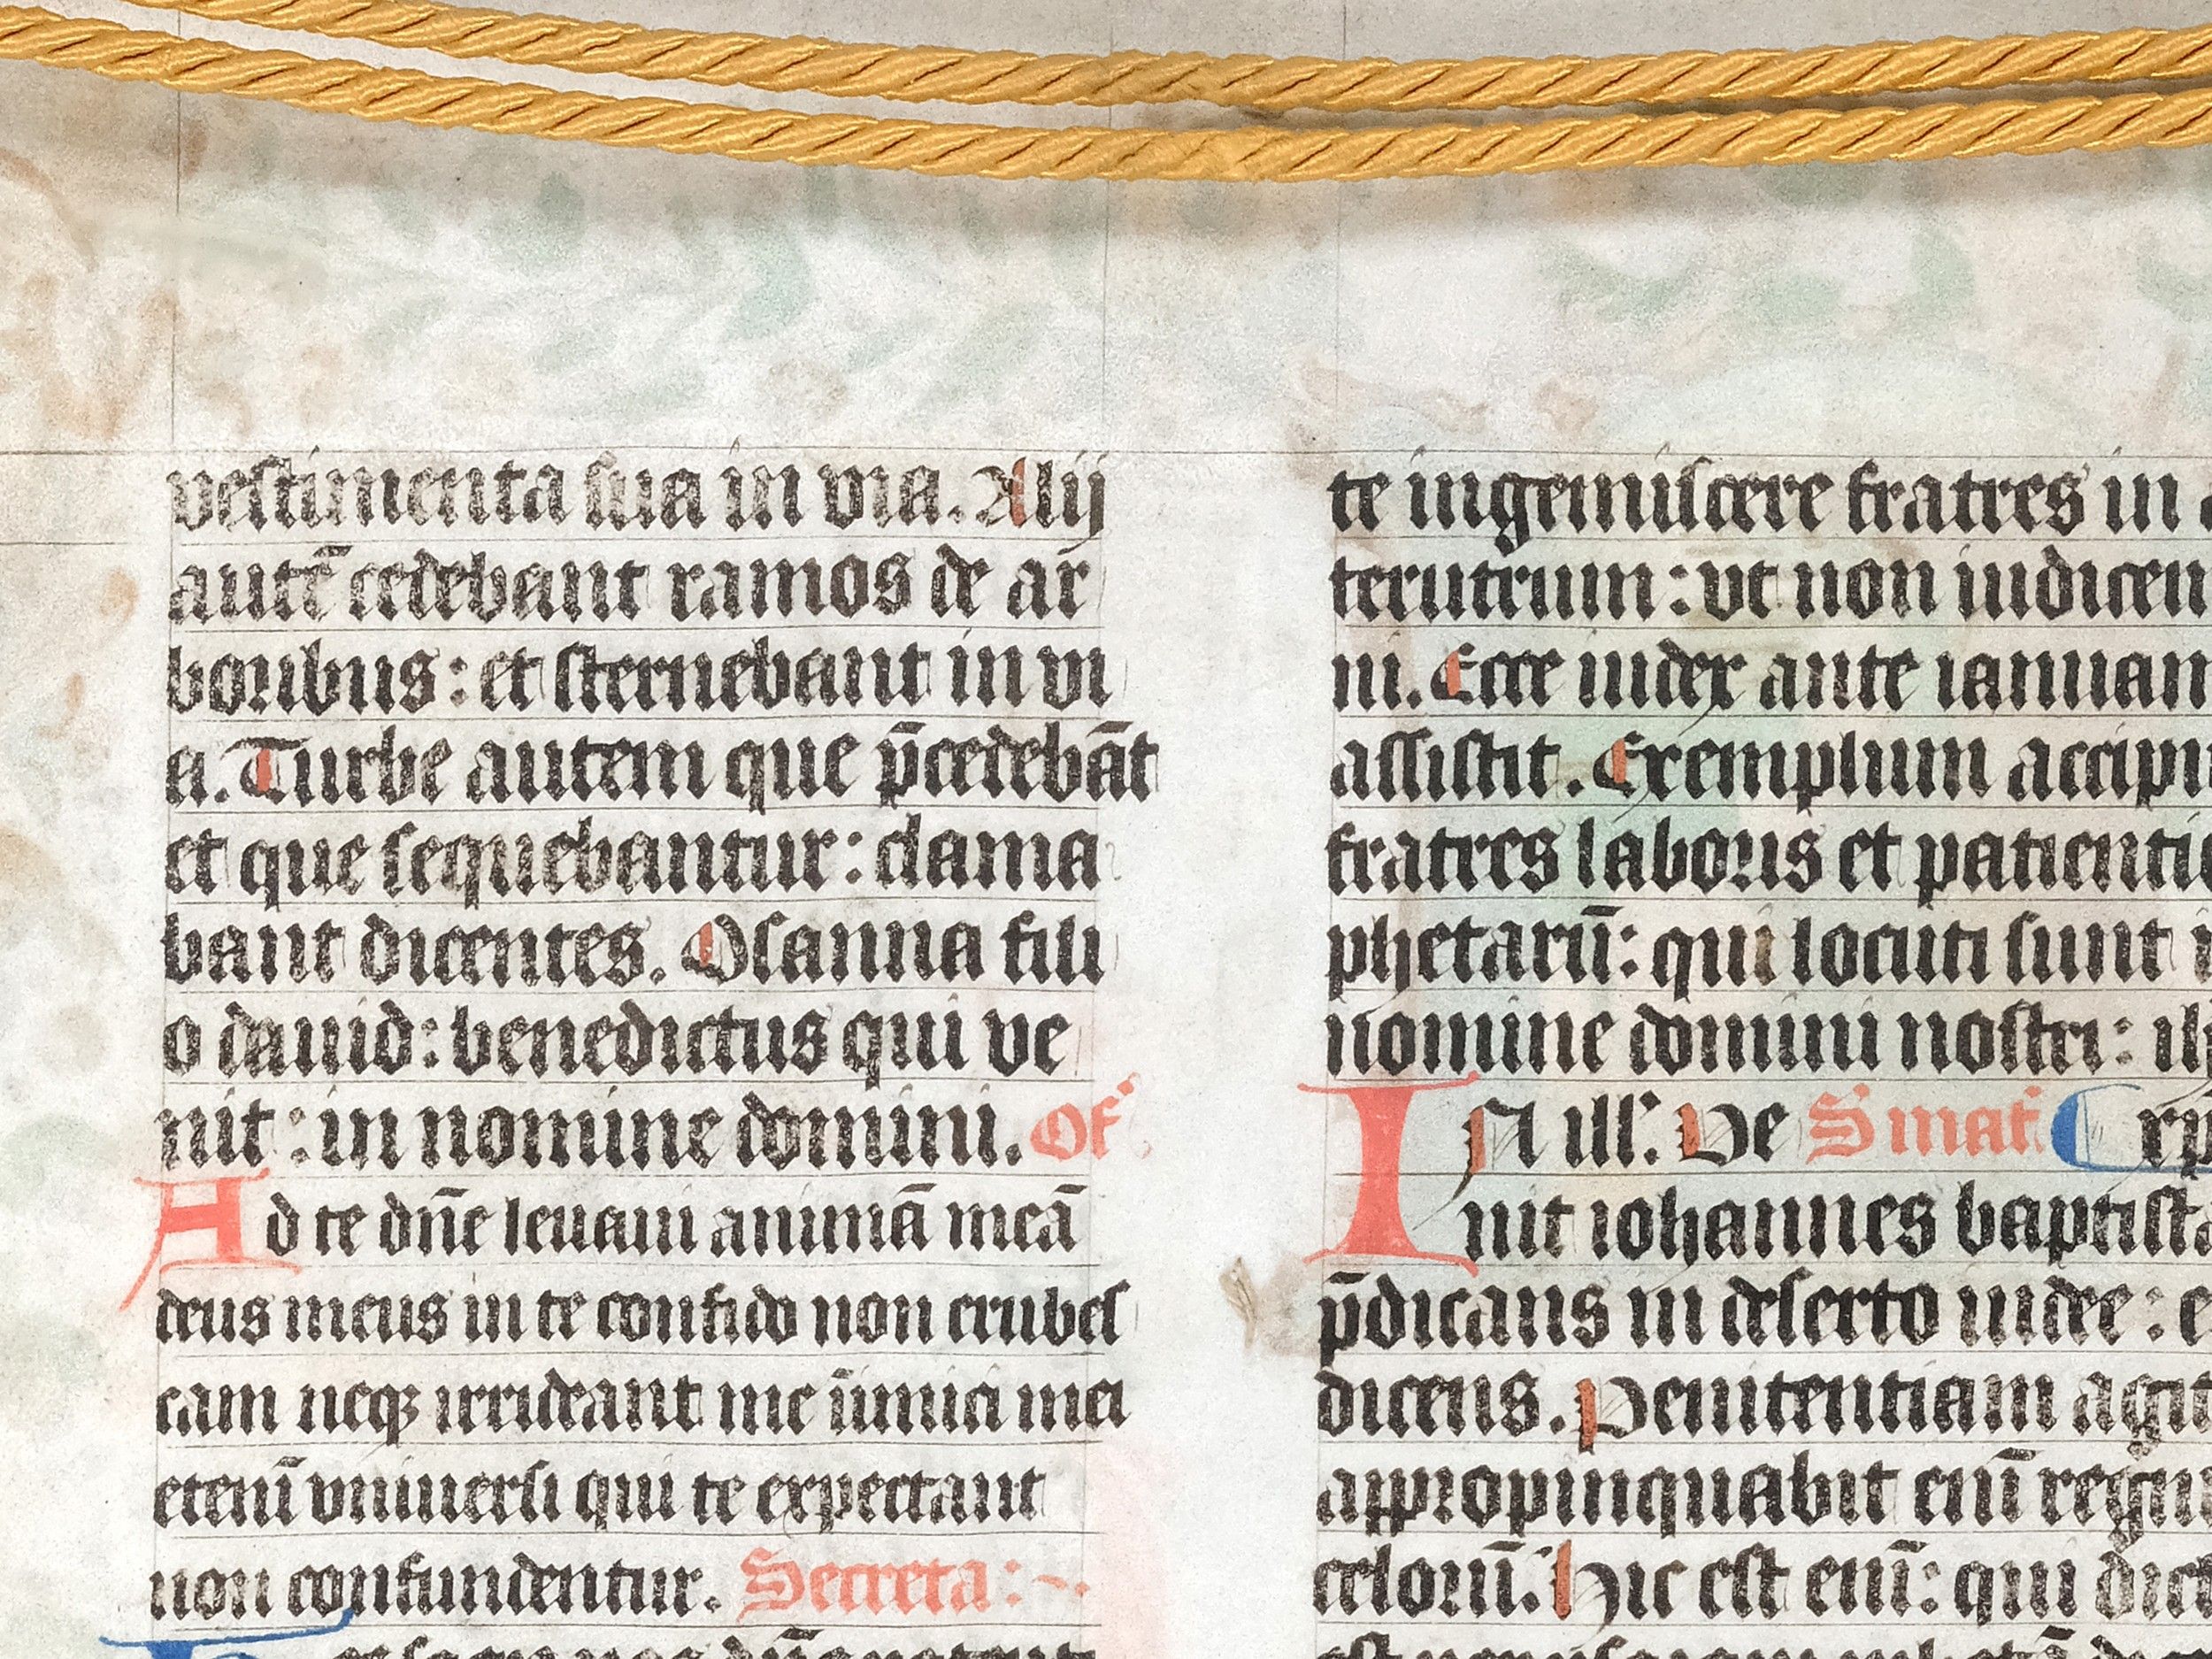 vestimenta sua in via. Alij
autē cedebant ramos de ar
boribus: et sternebant in vi
a. Turbe autem que p̄cedebāt
et que sequebantur: clama
bant dicentes. Osanna fili
o dauid: benedictus qui ve
nit: in nomine domini. Of
Ad te dn̄e leuaui animā meā
deus meus in te confido non erubes
cam neqꝫ irrideant me īimici mei
etenī vniuersi qui te expectant
non confundentur. Secreta:
te ingemiscere fratres in
terutrum: vt non iudicen
ni. Ecce iudex ante ianuam
assistit. Exemplum accipi
fratres laboris et patienti
phetarū: qui locuti sunt i
nomine domini nostri: ih
IN ill'. De S mat
nit iohannes baptista
p̄dicans in deserto iudee: e
dicens. Penitentiam agit
appropinquabit enī regnū
celorū. Hic est enī: qui dict